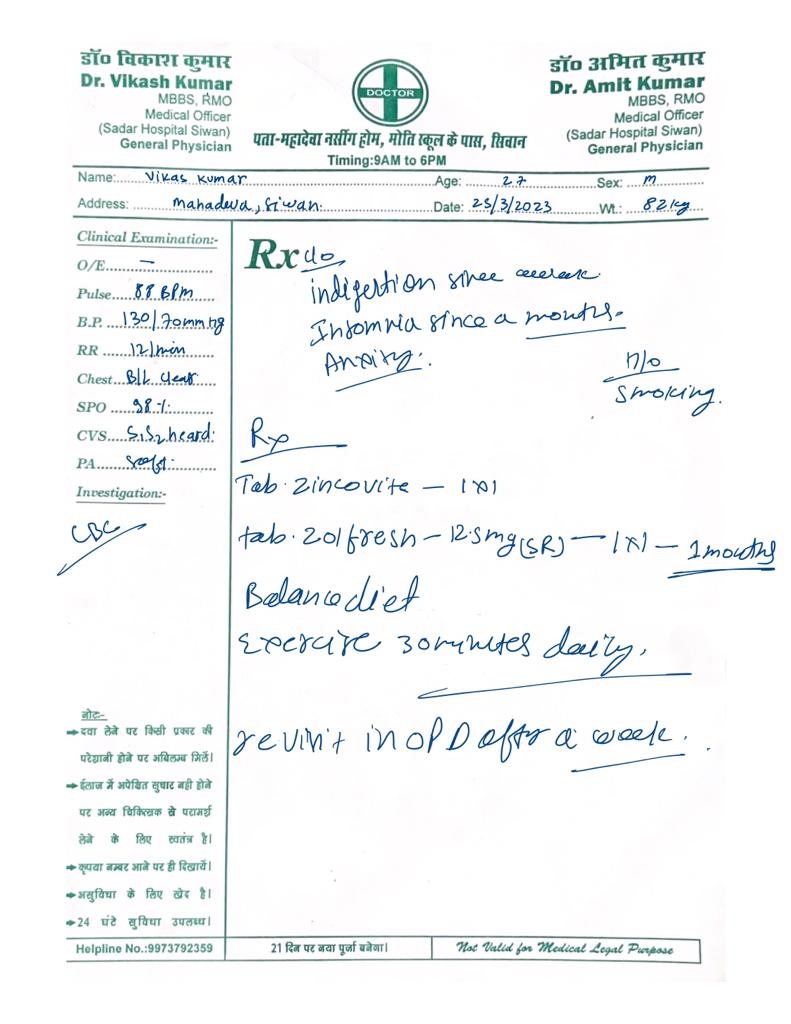 डॉ० विकाश कुमार
Dr. Vikash Kumar
MBBS, RMO
Medical Officer
(Sadar Hospital Siwan)
General Physician
DOCTOR
पता-महादेवा नर्सींग होम, मोति स्कूल के पास, सिवान
Timing:9AM to 6PM
डॉ० अमित कुमार
Dr. Amit Kumar
MBBS, RMO
Medical Officer
(Sadar Hospital Siwan)
General Physician
Name: Vikas Kumar Age: 27 Sex: M
Address: Mahadeva, Siwan. Date: 25/3/2023 Wt.: 82kg
Clinical Examination:-
O/E. —
Pulse 88 BPM
B.P. 130/70mmHg
RR 12/min
Chest B/L clear
SPO 98%
CVS S1S2 heard.
PA soft.
Investigation:-
CBC
Rx c/o
indigestion since a week.
Insomnia since a months.
Anxity.
H/o
Smoking.
Rx
Tab. Zincovite – 1x1
tab. Zolfresh – 12.5mg (SR) – 1x1 – 1 months
Balance diet
Exercise 30 minutes daily.
revisit in OPD after a week.
नोट:-
दवा लेने पर किसी प्रकार की
परेशानी होने पर अबिलम्ब मिलें।
ईलाज में अपेक्षित सुधार नही होने
पर अन्य चिकित्सक से परामर्श
लेने के लिए स्वतंत्र है।
कृपया नम्बर आने पर ही दिखायें।
असुविधा के लिए खेद है।
24 घंटे सुविधा उपलब्ध।
Helpline No.:9973792359
21 दिन पर नया पूर्जा बनेगा।
Not Valid for Medical Legal Purpose